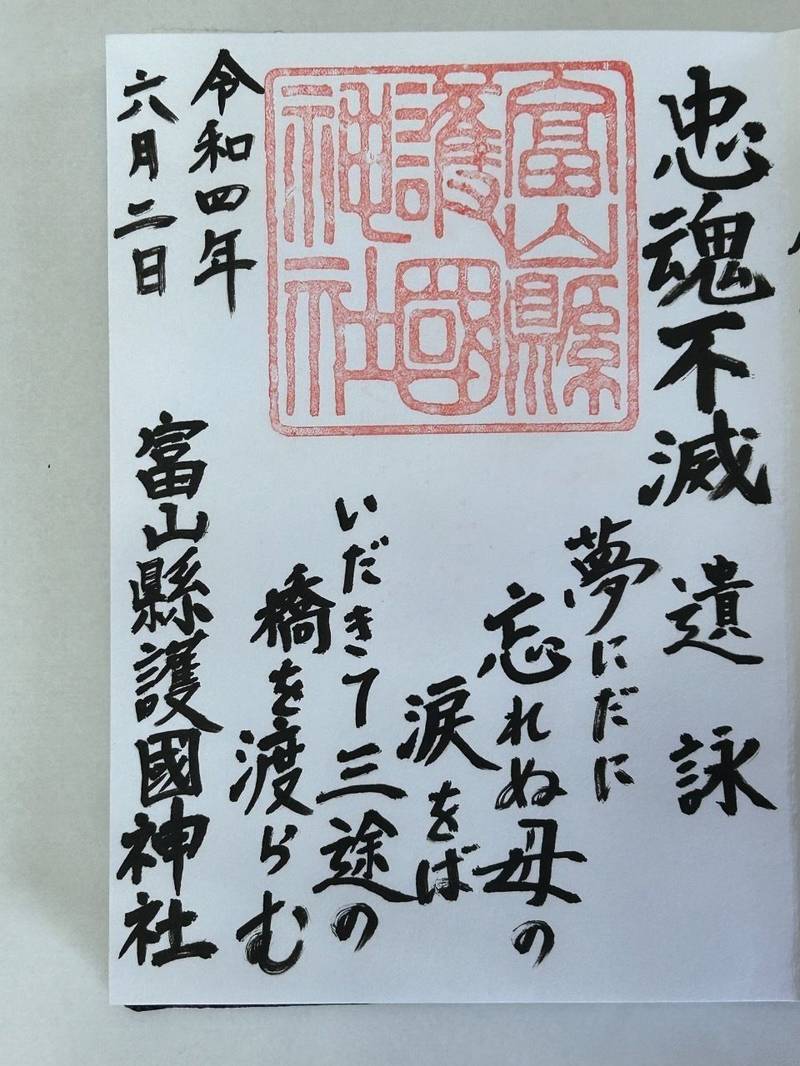 忠魂不滅
遺詠
夢にだに
忘れぬ母の
涙をば
いだきて三途の
橋を渡らむ
富山縣護國神社
令和四年
六月二日
富山縣護國神社